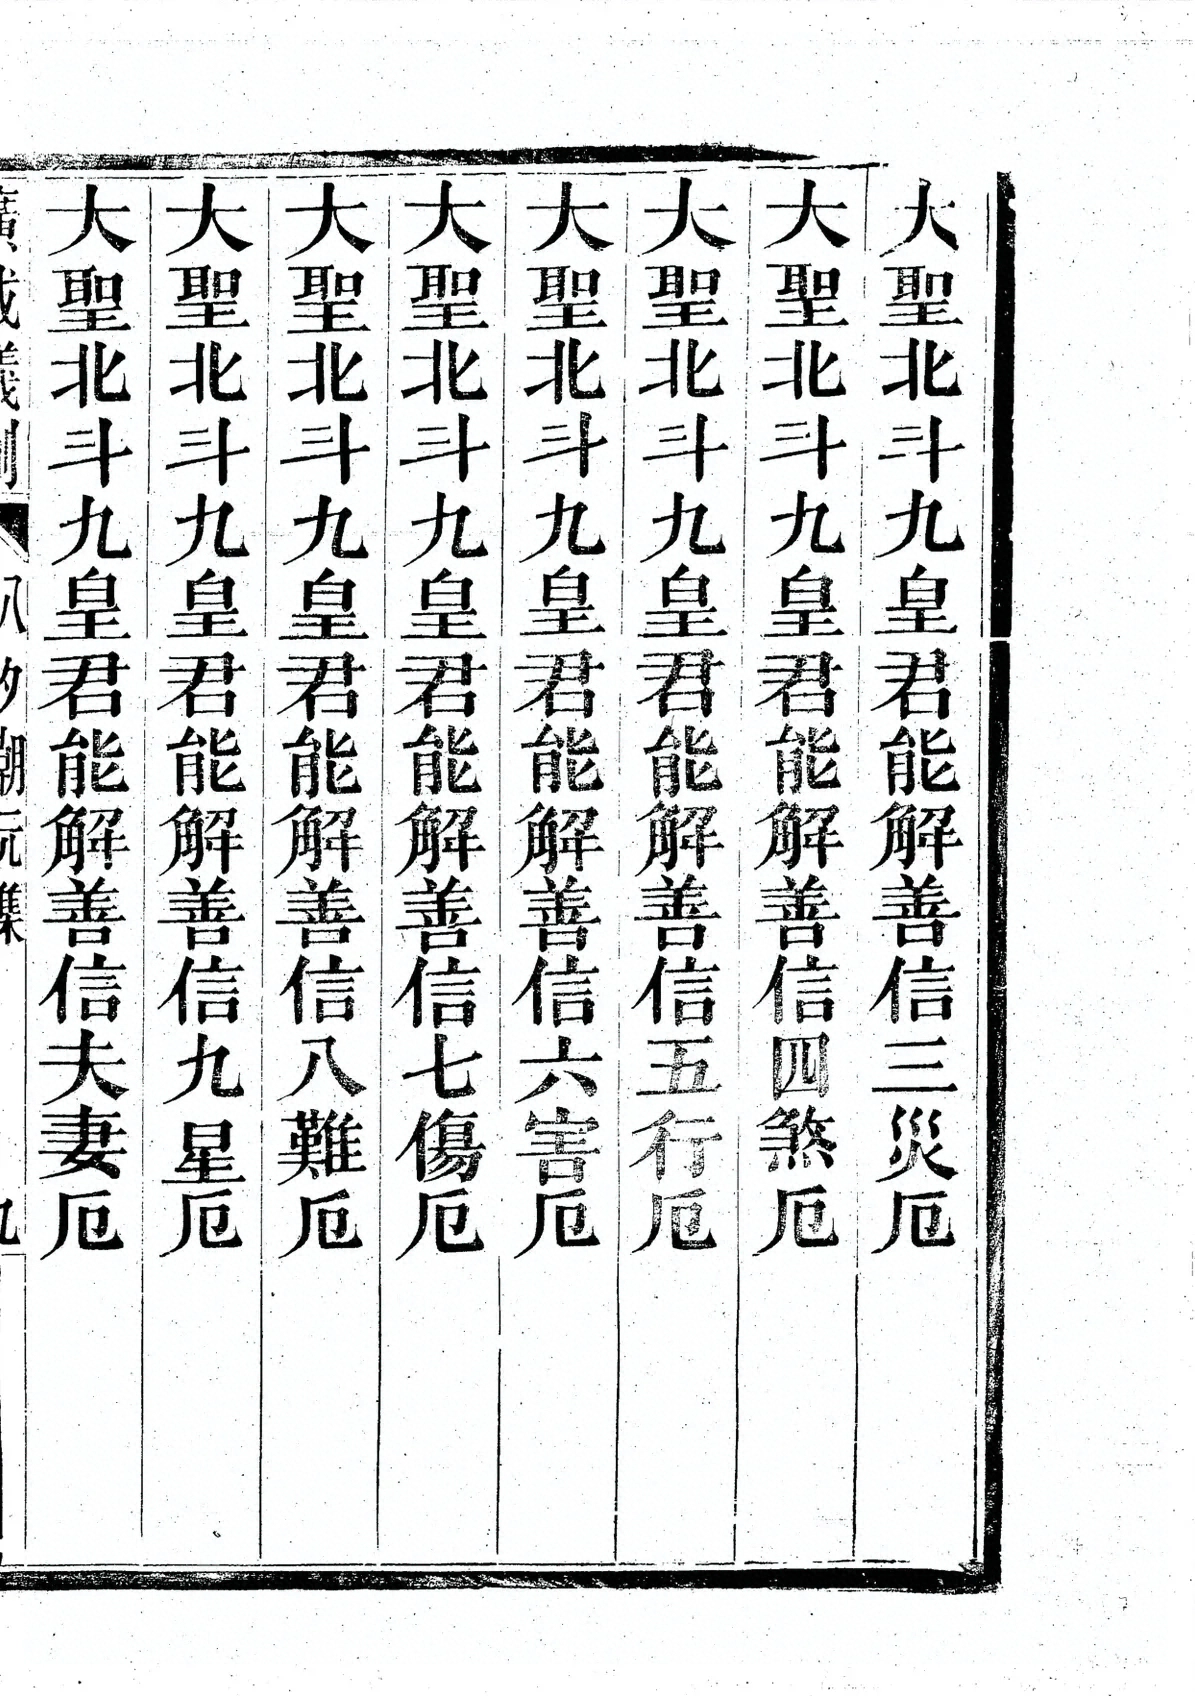 大聖北斗九皇君能解善信三災厄
大聖北斗九皇君能解善信四煞厄
大聖北斗九皇君能解善信五行厄
大聖北斗九皇君能解善信六害厄
大聖北斗九皇君能解善信七傷厄
大聖北斗九皇君能解善信八難厄
大聖北斗九皇君能解善信九星厄
大聖北斗九皇君能解善信夫妻厄
廣成儀制
九